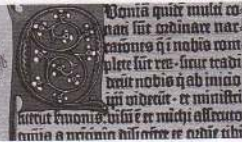 Quoniā quidē multi co
nati sūt ordinare nar
rationes q̄ i nobis com
plete sūt reꝝ · sicut tradi
derūt nobis q̄ ab inicio
ipi viderūt · et ministri
fuerūt ẜmonis visū ē et michi assecuto
omnia a principio diligēter ex ordīe tibi